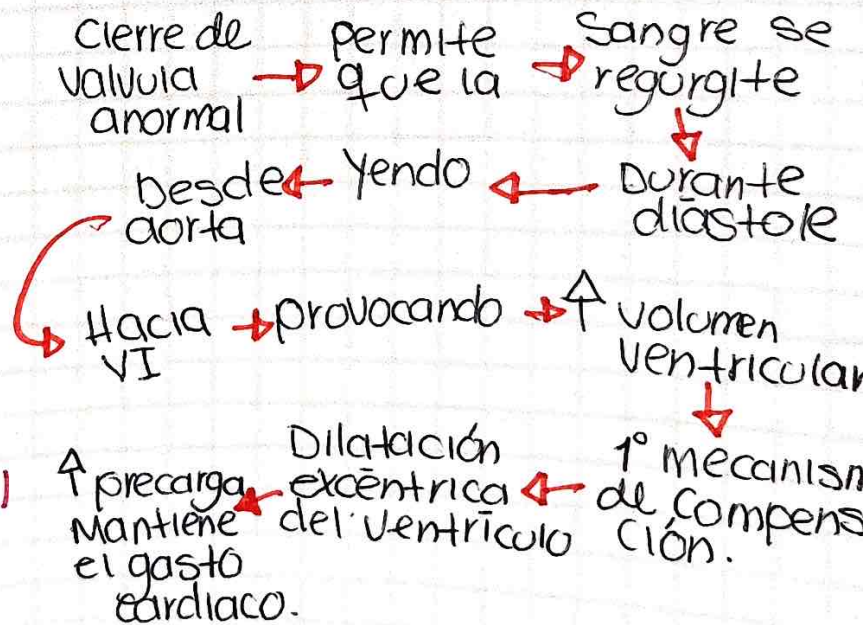 Cierre de
valvula
anormal
permite
que la
Sangre se
regurgite
Durante
diástole
Yendo
Desde
aorta
Hacia
VI
provocando
↑ volumen
ventricular
1° mecanism
de compens
ción.
Dilatación
excéntrica
del ventrículo
↑ precarga
Mantiene
el gasto
cardiaco.